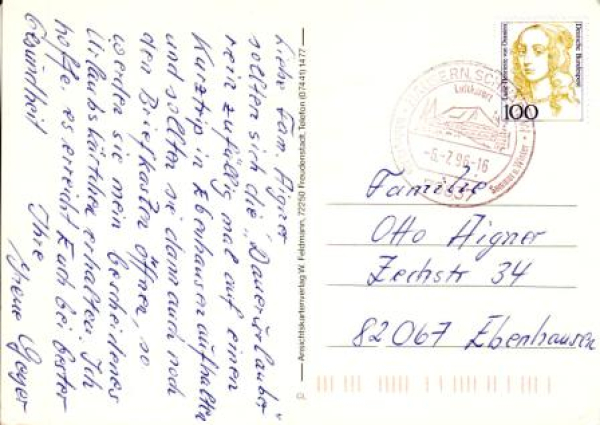 Liebe Fam. Aigner
sollten sich die "Dauerurlauber"
rein zufällig mal auf einen
Kurztrip in Ebenhausen aufhalten
und sollten sie dann auch noch
den Briefkasten öffnen, so
werden sie mein bescheidenes
Urlaubskärtchen erhalten. Ich
hoffe, es erreicht Euch bei bester
Gesundheit
Ihre
Irene Geyer
Ansichtskartenverlag W. Feldmann, 72250 Freudenstadt, Telefon (07441) 1477
Luftkurort
-6.-7.96-16
Sommer u. Winter
Deutsche Bundespost
Luise Henriette von Oranien
100
Familie
Otto Aigner
Zechstr 34
82067 Ebenhausen